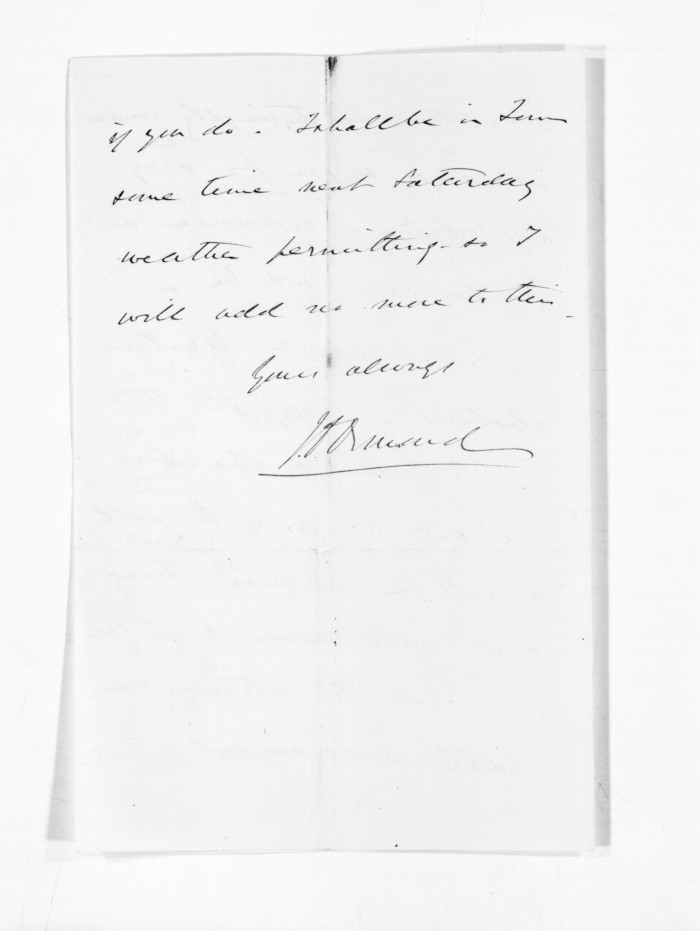 if you do - I shall be in Town
some time next Saturday
weather permitting - so I
will add no more to this -
Yours always
J.D. Ormond